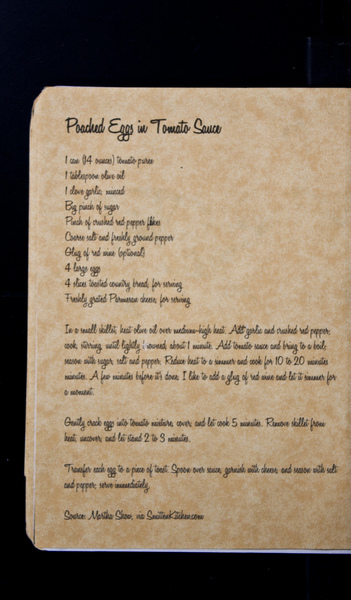 Poached Eggs in Tomato Sauce
1 can (14 ounces) tomato puree
1 tablespoon olive oil
1 clove garlic, minced
Big pinch of sugar
Pinch of crushed red pepper flakes
Coarse salt and freshly ground pepper
Glug of red wine (optional)
4 large eggs
4 slices toasted country bread, for serving
Freshly grated Parmesan cheese, for serving
In a small skillet, heat olive oil over medium-high heat. Add garlic and crushed red pepper;
cook, stirring, until lightly browned, about 1 minute. Add tomato sauce and bring to a boil;
season with sugar, salt and pepper. Reduce heat to a simmer and cook for 10 to 20 minutes
minutes. A few minutes before it's done, I like to add a glug of red wine and let it simmer for
a moment.
Gently crack eggs into tomato mixture, cover, and let cook 5 minutes. Remove skillet from
heat, uncover, and let stand 2 to 3 minutes.
Transfer each egg to a piece of toast. Spoon over sauce, garnish with cheese, and season with salt
and pepper; serve immediately.
Source: Martha Show, via SmittenKitchen.com